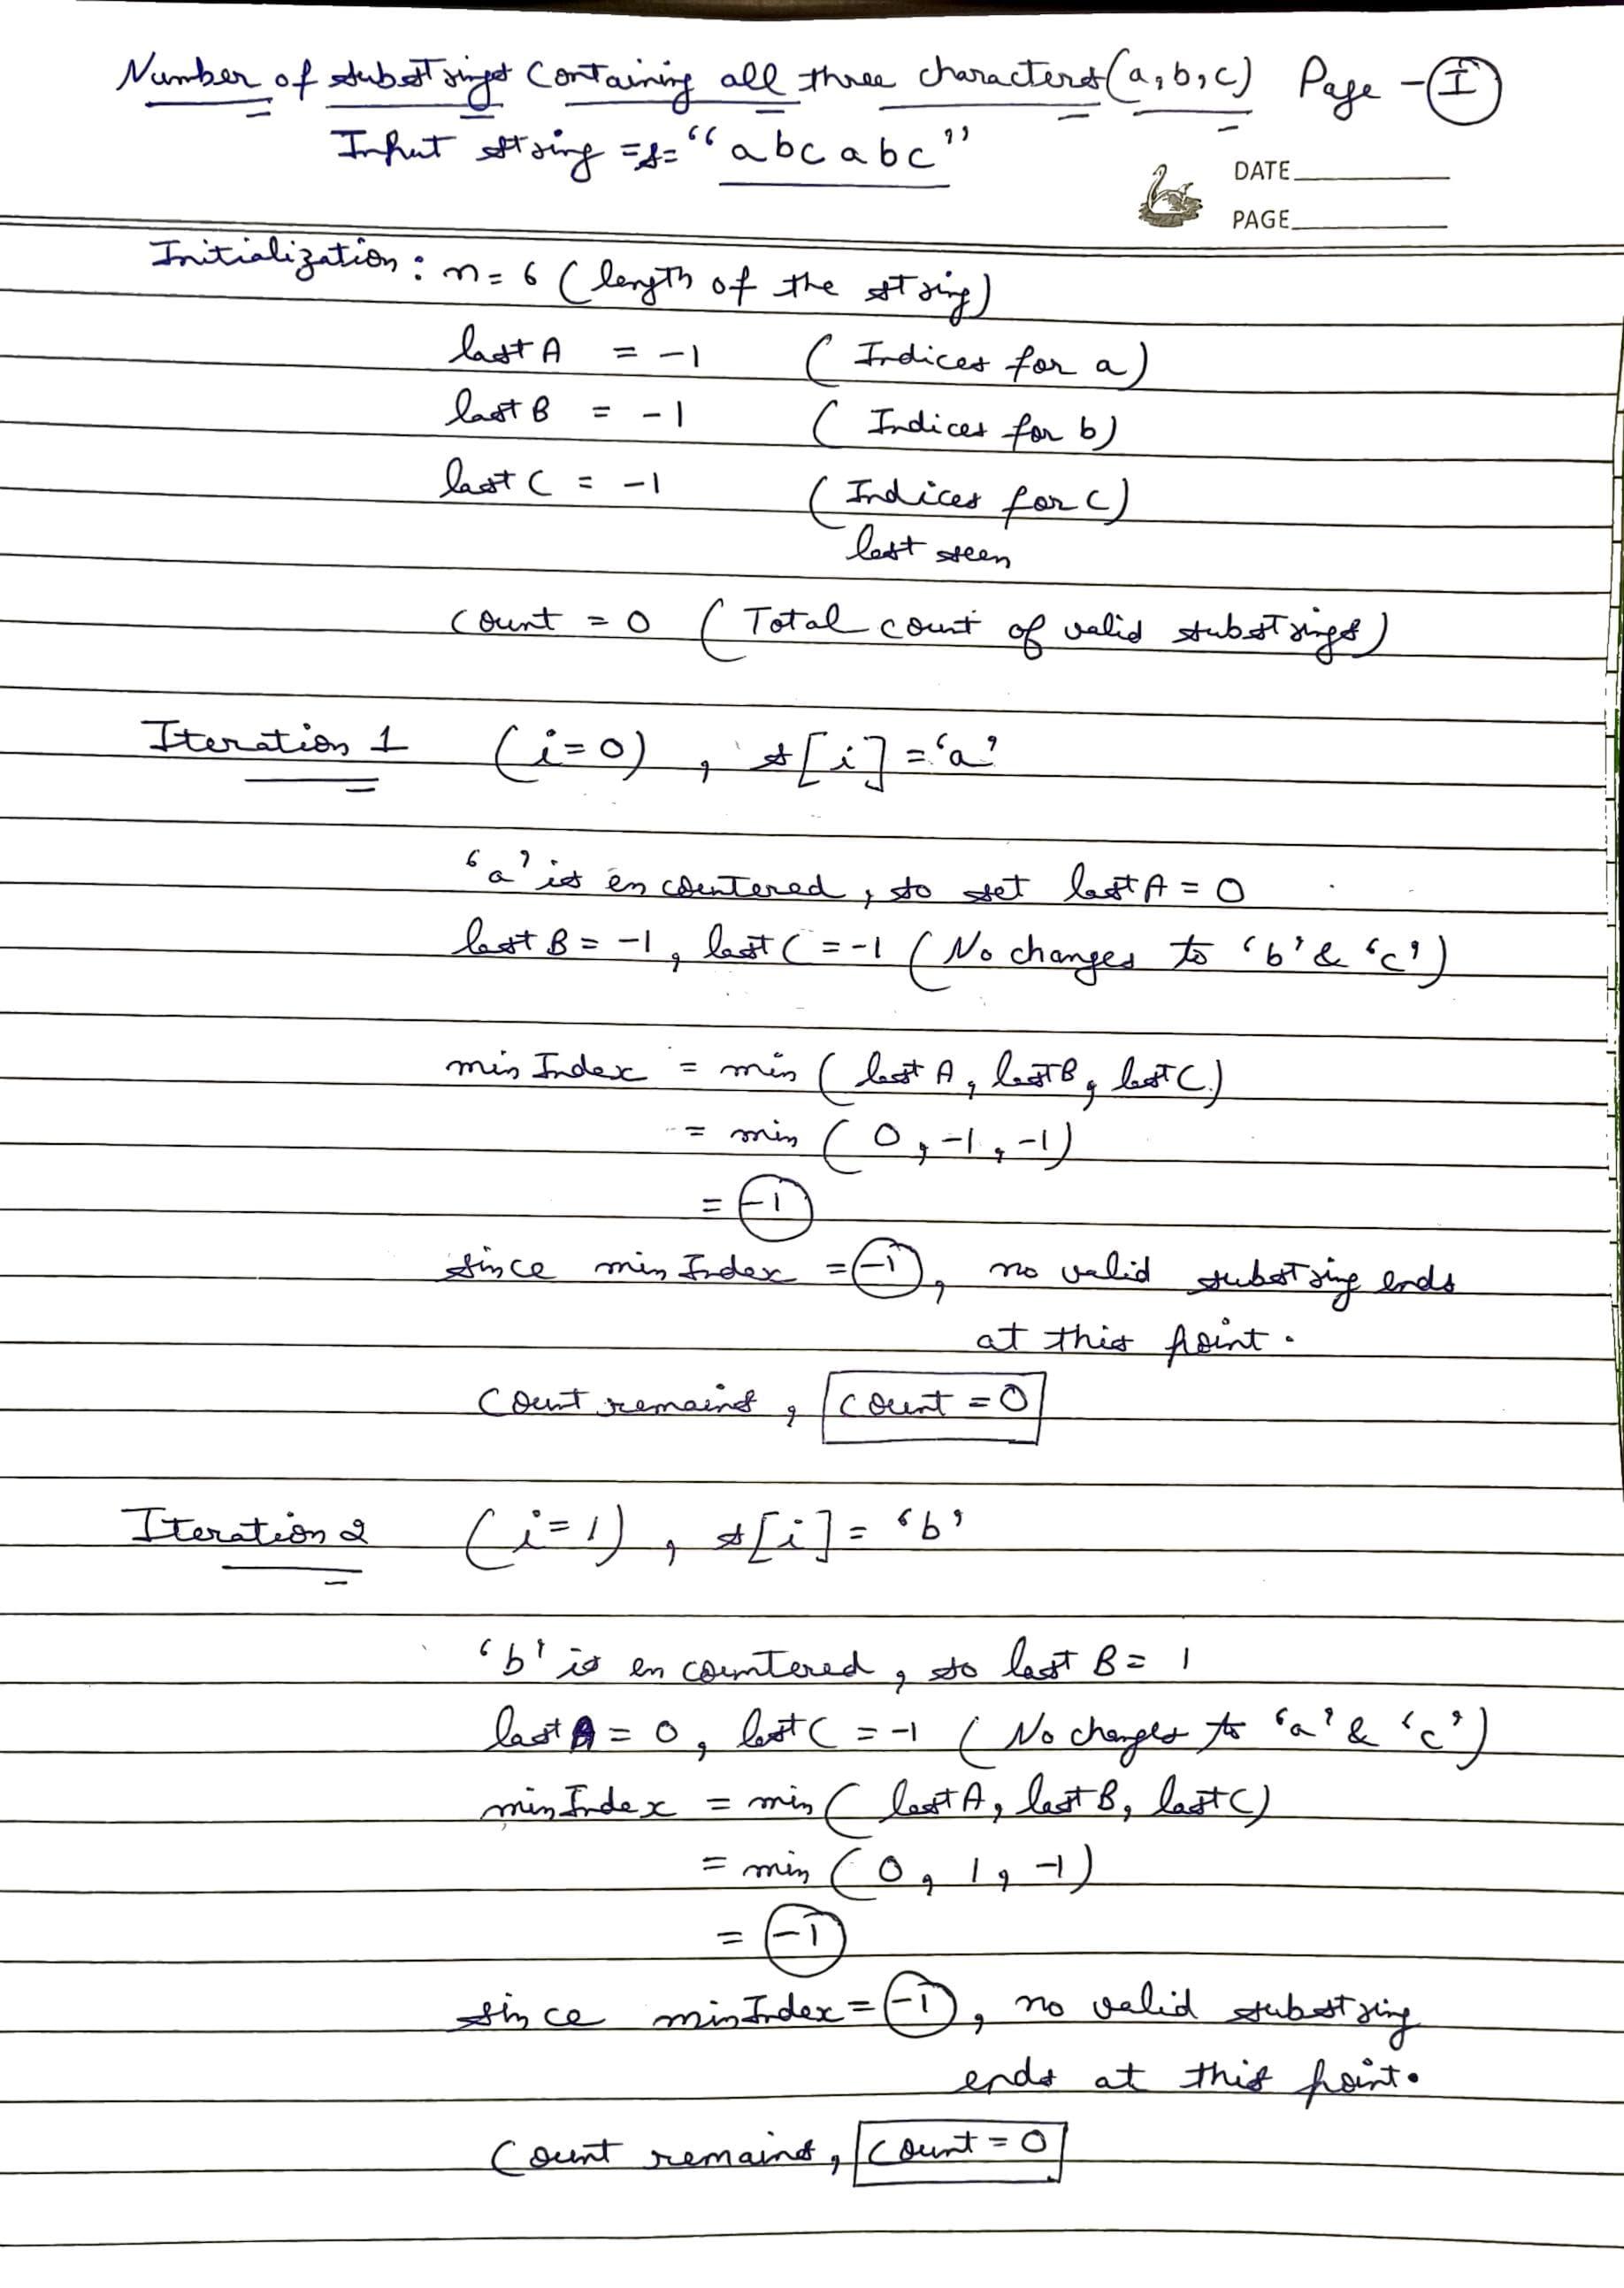 Number of substrings Containing all three characters (a,b,c) Page - I
Input string = s = "abcabc"
DATE
PAGE
Initialization : n = 6 ( length of the string)
last A = -1 ( Indices for a)
last B = -1 ( Indices for b)
last C = -1 ( Indices for c)
last seen
count = 0 ( Total count of valid substrings)
Iteration 1 (i=0) , s[i] = 'a'
'a' is encountered, so set last A = 0
last B = -1, last C = -1 ( No changes to 'b' & 'c')
min Index = min ( last A, last B, last C)
= min ( 0, -1, -1)
= -1
since min Index = -1, no valid substring ends
at this point.
Count remains, count = 0
Iteration 2 (i=1) , s[i] = 'b'
'b' is encountered, so last B = 1
last A = 0, last C = -1 ( No changes to 'a' & 'c')
min Index = min ( last A, last B, last C)
= min ( 0, 1, -1)
= -1
since min Index = -1, no valid substring
ends at this point.
Count remains, count = 0